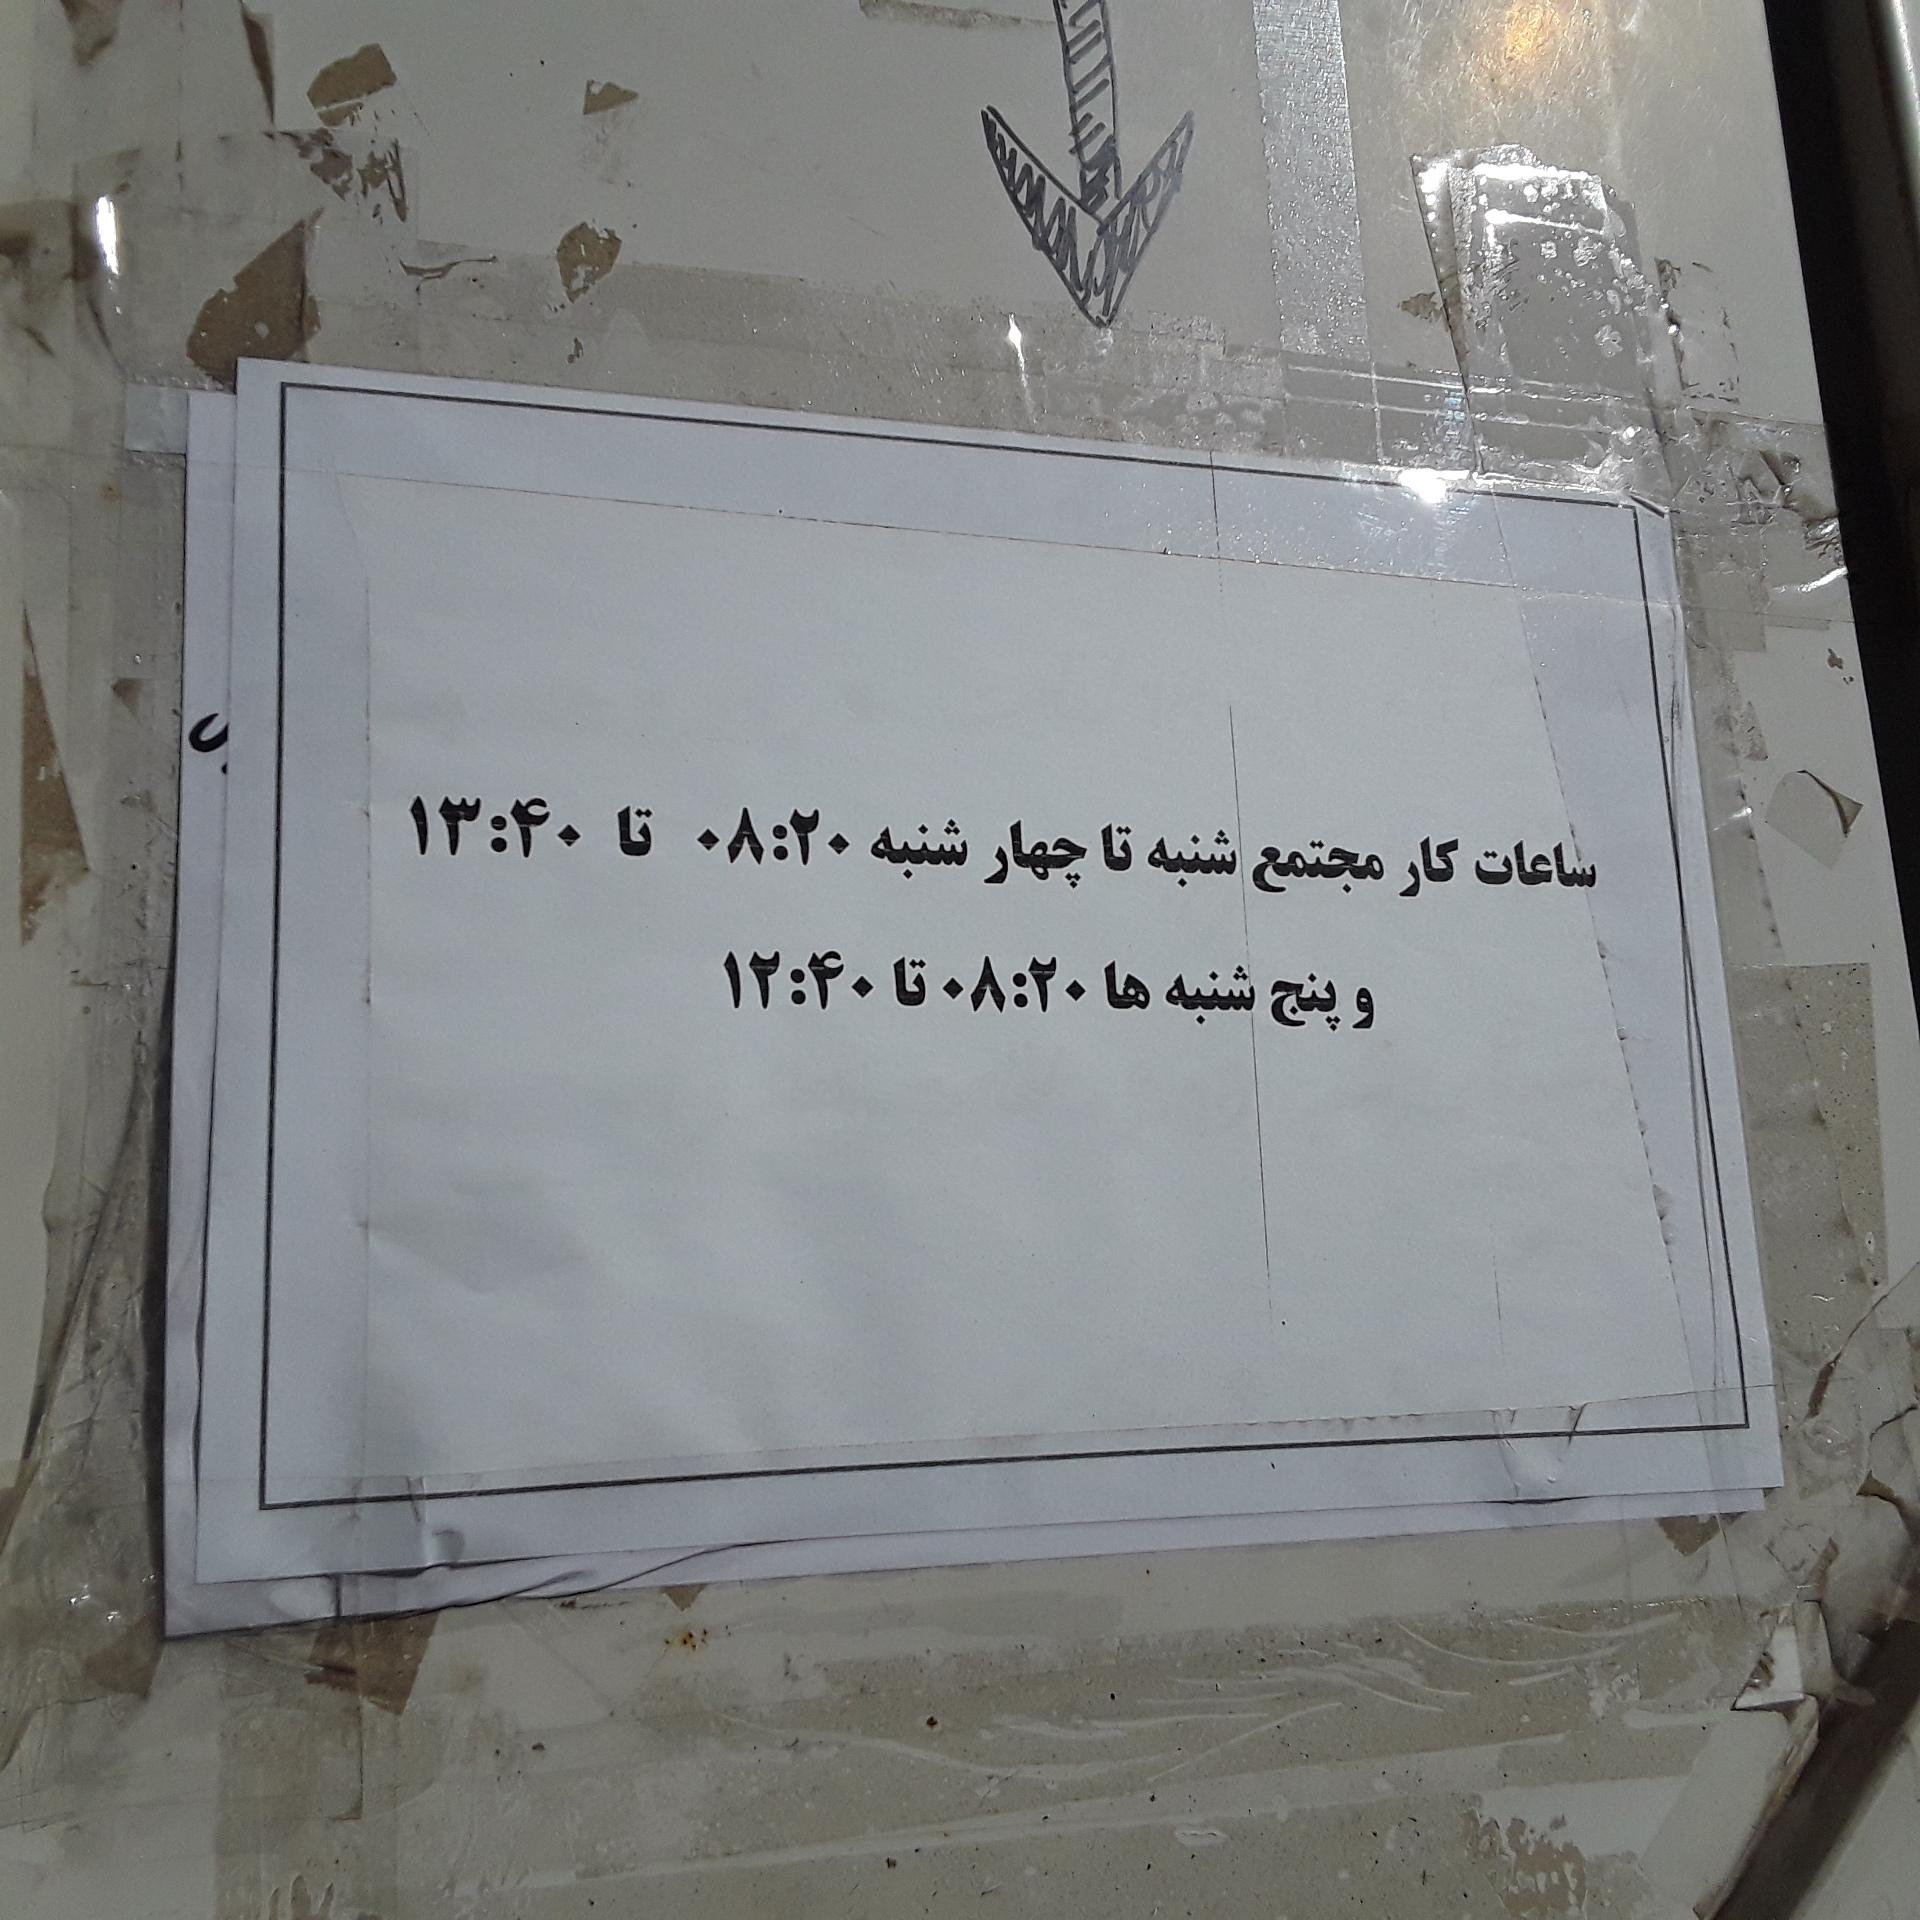 ساعات کار مجتمع شنبه تا چهار شنبه ۰۸:۲۰ تا ۱۳:۴۰
و پنج شنبه ها ۰۸:۲۰ تا ۱۲:۴۰